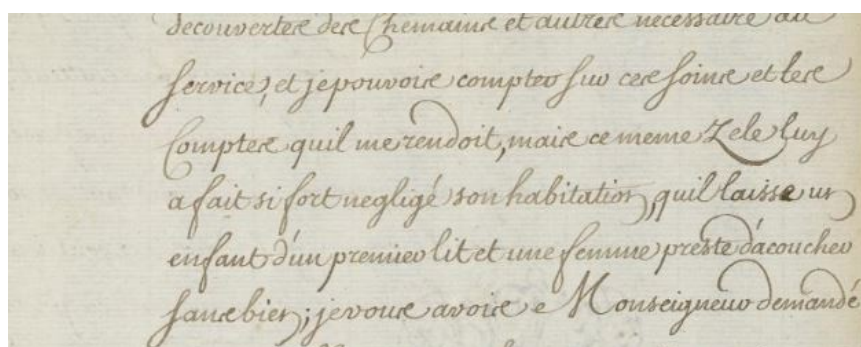 decouvertes des Chemains et autres necessaire au
service, et je pouvois compter sur ces soins et les
Comptes quil me rendoit, mais ce meme Zele luy
a fait si fort negligé son habitation, quil laisse un
enfant d'un premier lit et une femme preste d'acoucher
sans bien; je vous avois e Monseigneur demandé